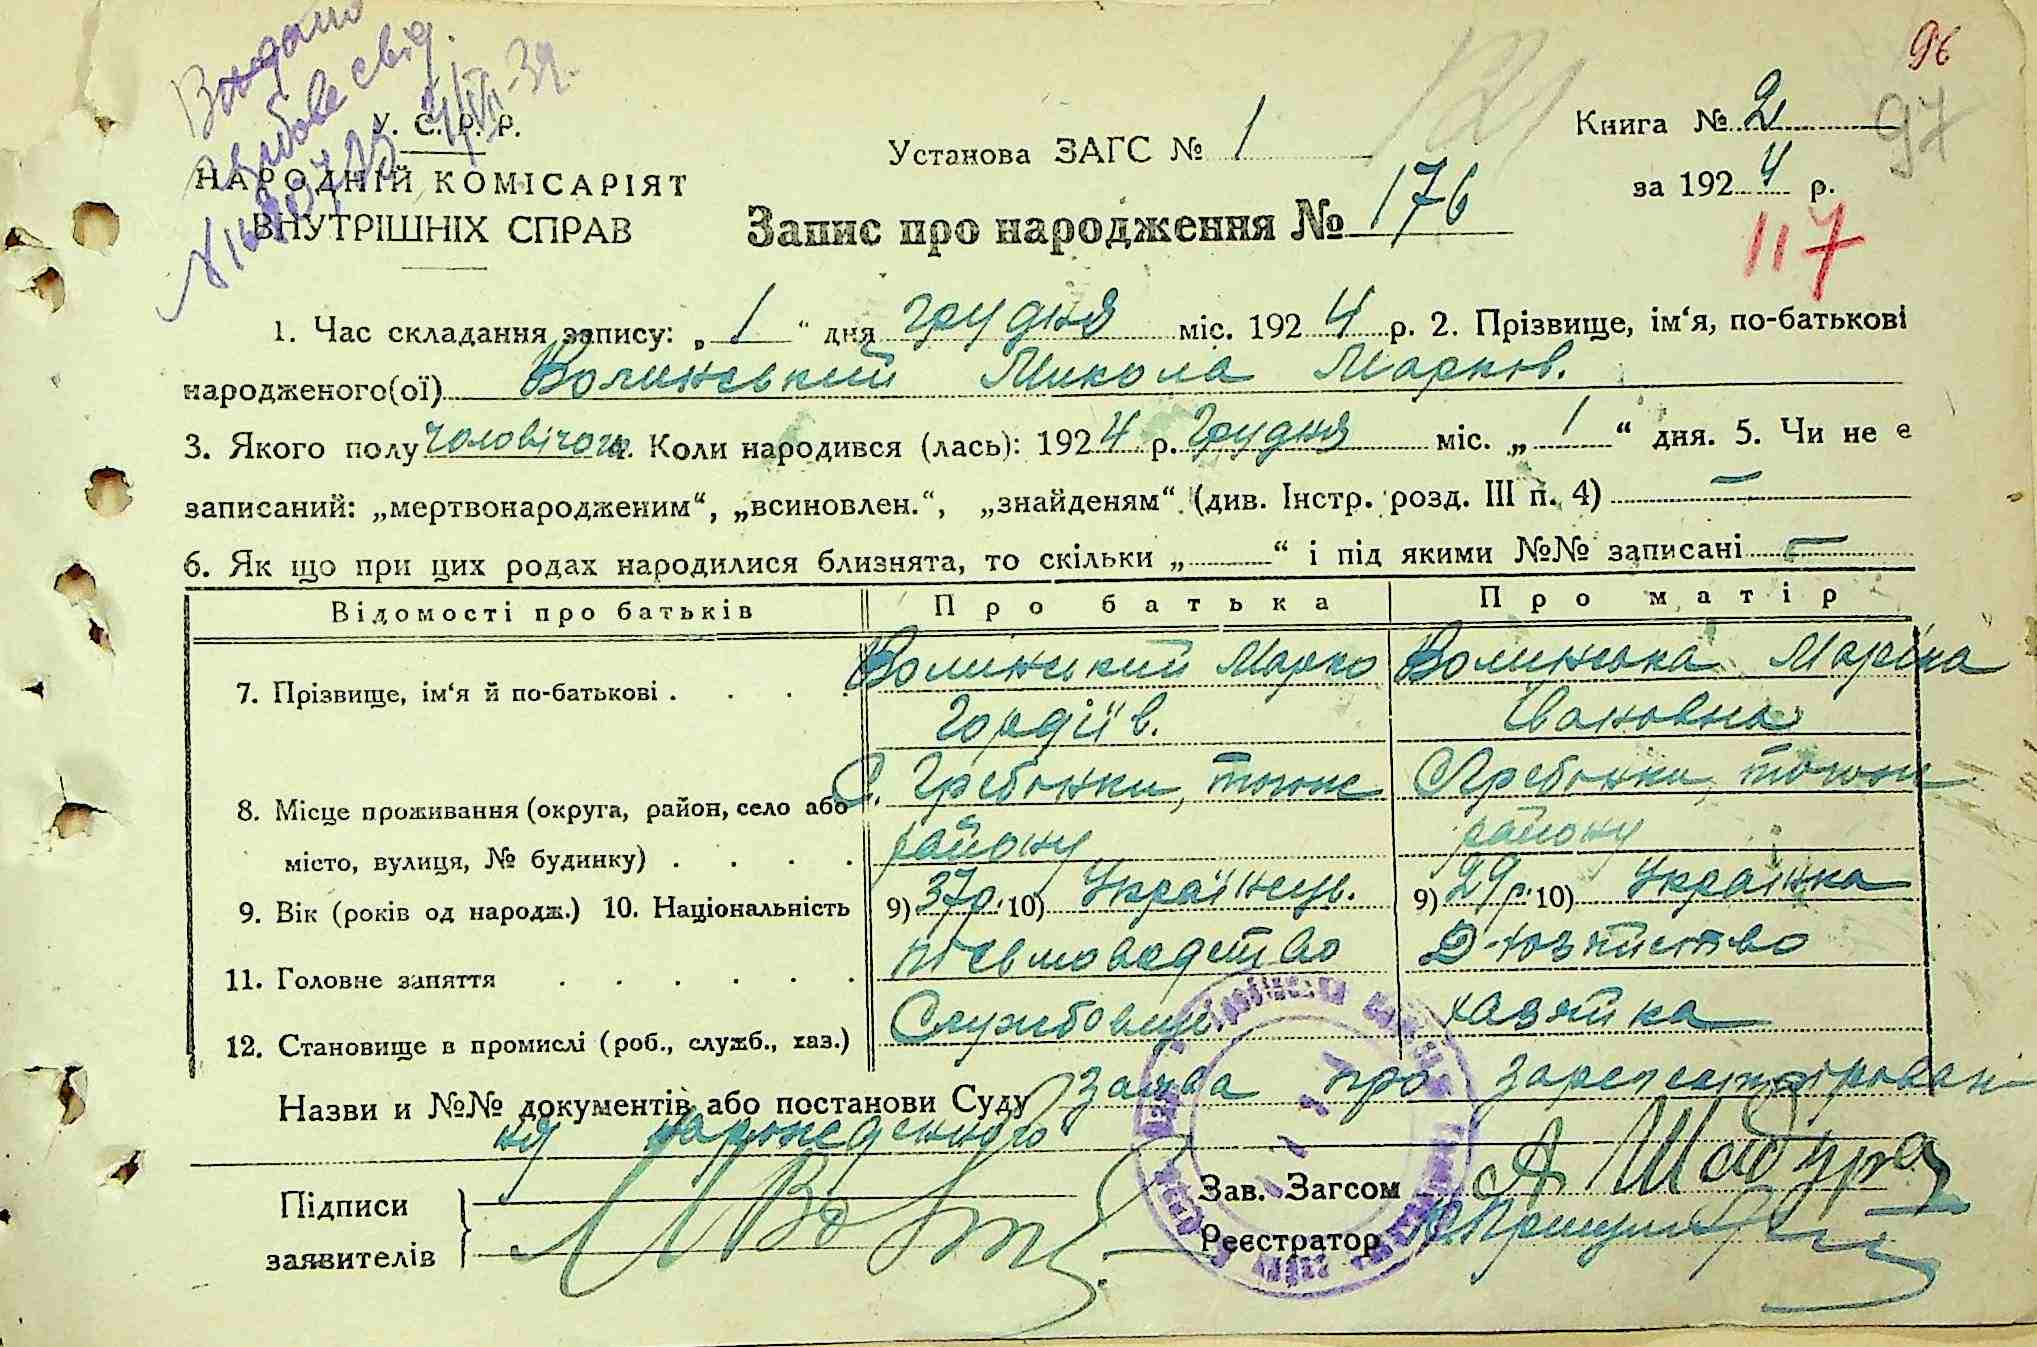 96
97
121
Видано
свід.
У. С. Р. Р.
НАРОДНІЙ КОМІСАРІЯТ
ВНУТРІШНІХ СПРАВ
Установа ЗАГС № 1
Книга № 2
за 1924 р.
Запис про народження № 176
117
1. Час складання запису: „ 1 “ дня грудня міс. 1924 р. 2. Прізвище, ім‘я, по-батькові
народженого(ої) Волинський Микола Марков.
3. Якого полу чоловічого 4. Коли народився (лась): 1924 р. Грудня міс. „ 1 “ дня. 5. Чи не є
записаний: „мертвонародженим“, „всиновлен.“, „знайденям“ (див. Інстр. розд. III п. 4) —
6. Як що при цих родах народилися близнята, то скільки „ “ і під якими №№ записані —
Відомості про батьків Про батька Про матір
7. Прізвище, ім‘я й по-батькові . . . . Волинський Марко Волинська Маріна
Гордіїв. Івановна
8. Місце проживання (округа, район, село або С. Гребінки, тогож С. Гребінки, тогож
місто, вулиця, № будинку) . . . . району району
9. Вік (років од народж.) 10. Національність 9) 37 р. 10) Українець. 9) 29 р. 10) Українка
11. Головне заняття . . . . . . письмоводство Д-хозяйство
12. Становище в промислі (роб., служб., хаз.) Службовець хазяйка
Назви и №№ документів або постанови Суду Заява про зарегистрірован-
ня народженного
Підписи
заявителів
Зав. Загсом А Шабура
Реєстратор